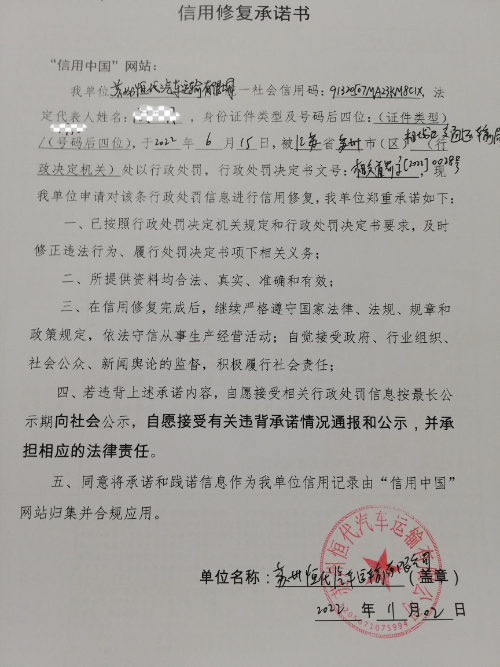 信用修复承诺书
“信用中国”网站：
我单位苏州恒代汽车运输有限公司一社会信用码：91320507MA23KM8C1X，法
定代表人姓名：，身份证件类型及号码后四位：（证件类型）
/（号码后四位），于2022年6月15日，被江苏省苏州市（区）（行
政决定机关）处以行政处罚，行政处罚决定书文号：[2022]00288号，现
我单位申请对该条行政处罚信息进行信用修复，我单位郑重承诺如下：
一、已按照行政处罚决定机关规定和行政处罚决定书要求，及时
修正违法行为、履行处罚决定书项下相关义务；
二、所提供资料均合法、真实、准确和有效；
三、在信用修复完成后，继续严格遵守国家法律、法规、规章和
政策规定，依法守信从事生产经营活动；自觉接受政府、行业组织、
社会公众、新闻舆论的监督，积极履行社会责任；
四、若违背上述承诺内容，自愿接受相关行政处罚信息按最长公
示期向社会公示，自愿接受有关违背承诺情况通报和公示，并承
担相应的法律责任。
五、同意将承诺和践诺信息作为我单位信用记录由“信用中国”
网站归集并合规应用。
苏州恒代汽车运输有限公司
单位名称：苏州恒代汽车运输有限公司（盖章）
2022年11月02日